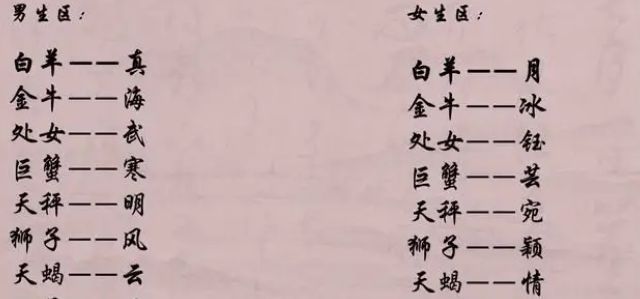 男生区：
白羊——真
金牛——海
处女——武
巨蟹——寒
天秤——明
狮子——风
天蝎——云
女生区：
白羊——月
金牛——冰
处女——钰
巨蟹——芸
天秤——宛
狮子——颖
天蝎——情